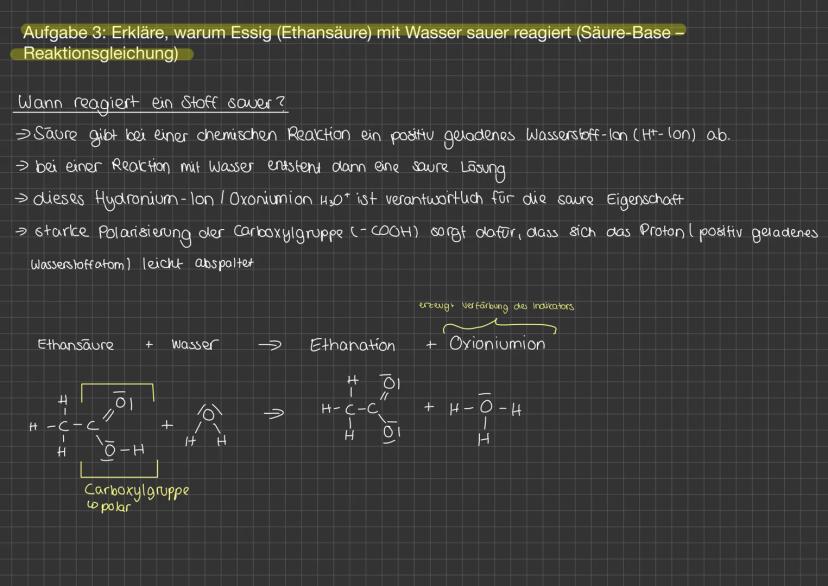 Aufgabe 3: Erkläre, warum Essig (Ethansäure) mit Wasser sauer reagiert (Säure-Base –
Reaktionsgleichung)
Wann reagiert ein Stoff sauer?
→ Säure gibt bei einer chemischen Reaktion ein positiv geladenes Wasserstoff-Ion (H+-Ion) ab.
→ bei einer Reaktion mit Wasser entstend dann eine saure Lösung
→ dieses Hydronium-Ion / Oxonium ion H₃O⁺ ist verantwortlich für die saure Eigenschaft
→ starke Polarisierung der Carboxylgruppe (-COOH) sorgt dafür, dass sich das Proton (positiv geladenes
Wasserstoffatom) leicht abspaltet
erzeugt Verfärbung des Indikators
Ethansäure + Wasser → Ethanation + Oxioniumion
H O| H O|
H - C - C + O → H - C - C + H - O - H
H O - H H H H O| H
Carboxylgruppe
↳ polar